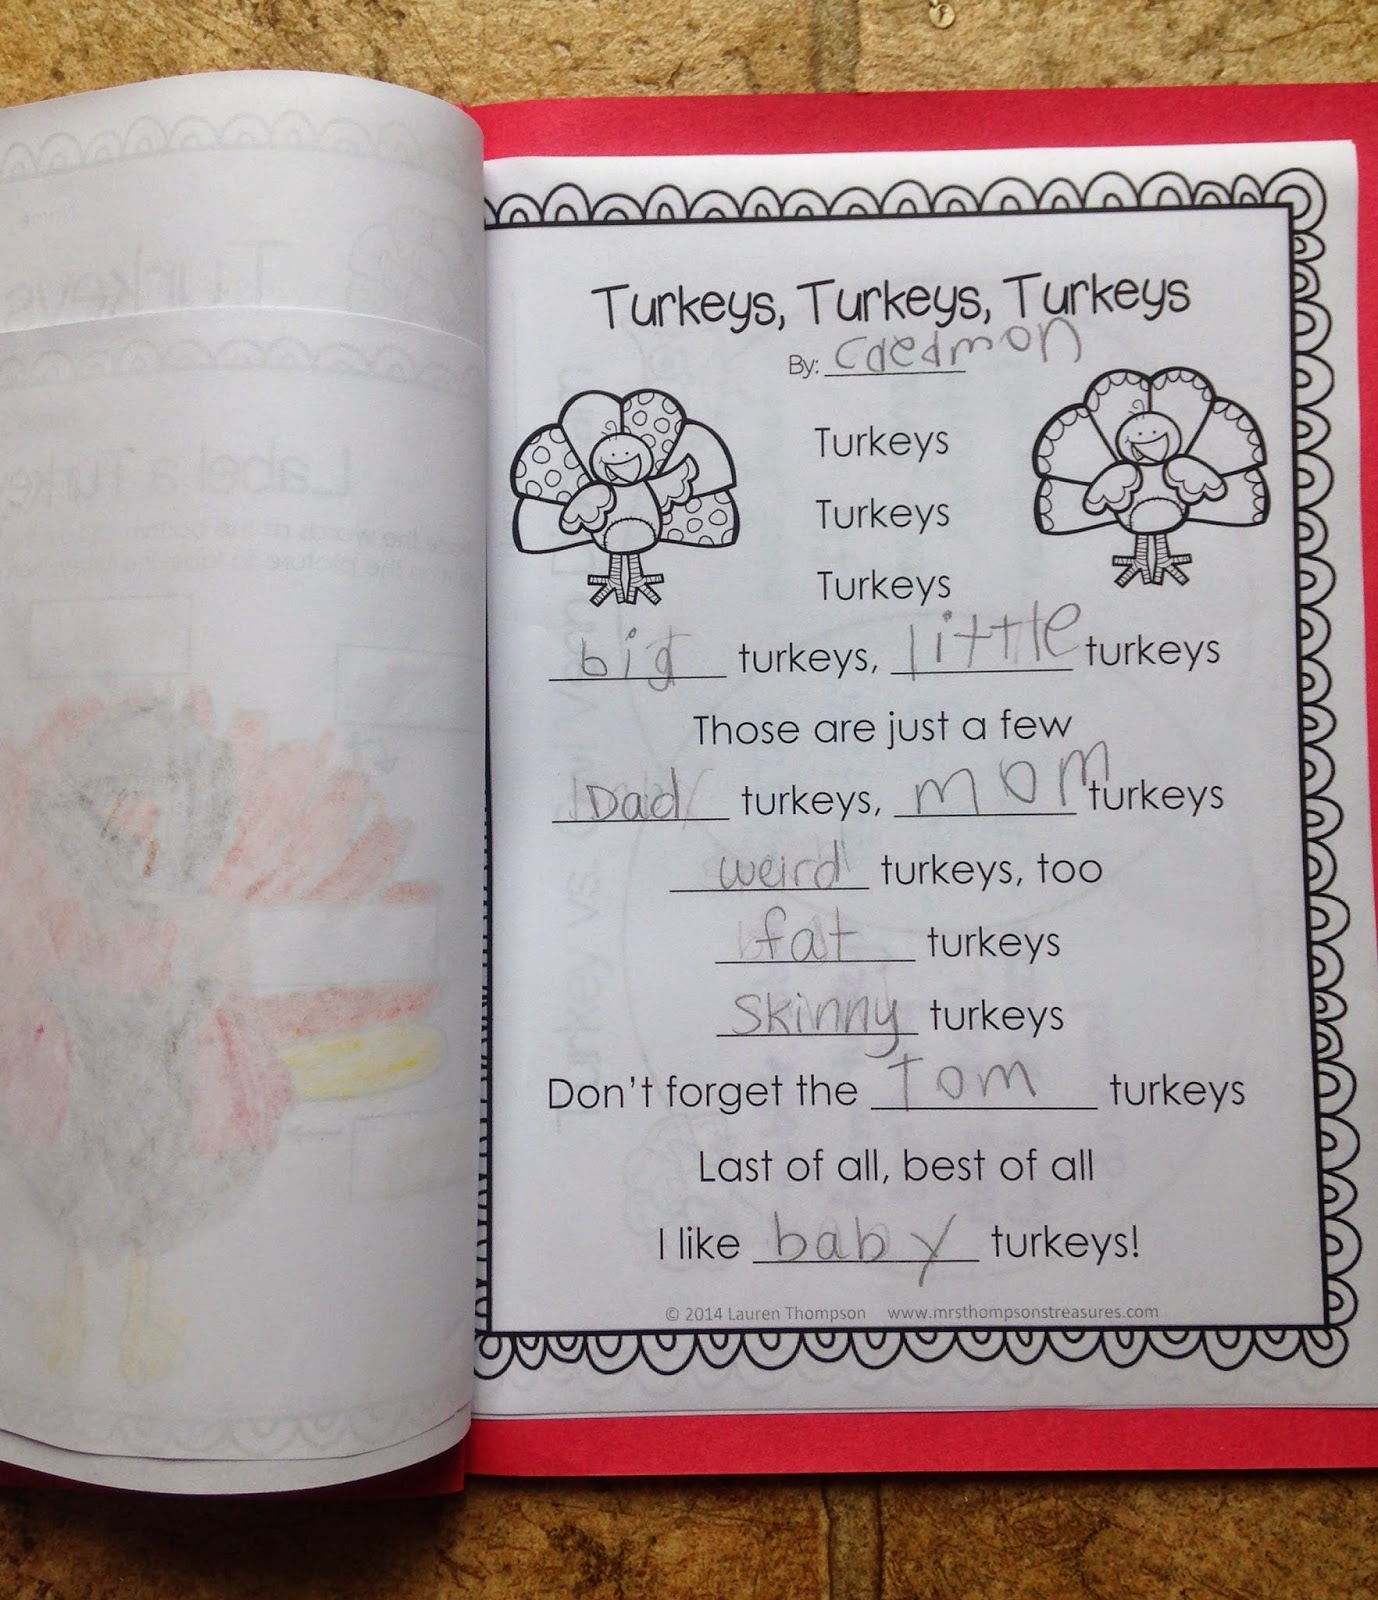 Turkeys, Turkeys, Turkeys
By: Caedmon
Turkeys
Turkeys
Turkeys
big turkeys, little turkeys
Those are just a few
Dad turkeys, mom turkeys
weird turkeys, too
fat turkeys
skinny turkeys
Don't forget the Tom turkeys
Last of all, best of all
I like baby turkeys!
© 2014 Lauren Thompson www.mrsthompsonstreasures.com